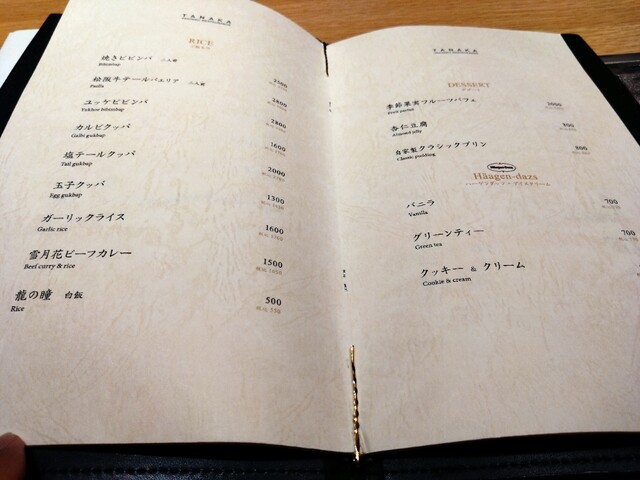 TANAKA
RICE
焼きビビンバ 二人前
Bibimbap
2500
松阪牛テールパエリア 二人前
Paella
2800
ユッケビビンバ
Yukhoe bibimbap
2800
カルビクッパ
Galbi gukbap
1600
塩テールクッパ
Tail gukbap
2000
玉子クッパ
Egg gukbap
1300
ガーリックライス
Garlic rice
1600
雪月花ビーフカレー
Beef curry & rice
1500
税込 1650
龍の瞳 白飯
Rice
500
税込 550
TANAKA
DESSERT
デザート
季節果実フルーツパフェ
Fruit parfait
2000
杏仁豆腐
Almond jelly
800
自家製クラシックプリン
Classic pudding
800
Häagen-Dazs
Häagen-dazs
ハーゲンダッツ・アイスクリーム
バニラ
Vanilla
700
グリーンティー
Green tea
700
クッキー & クリーム
Cookie & cream